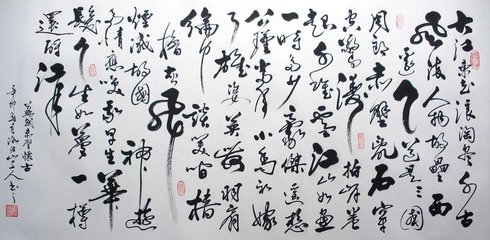 大江東去浪淘盡千古
風流人物故壘西
邊人道是三國
周郎赤壁亂石穿
空驚濤拍岸卷
起千堆雪江山如畫
一時多少豪傑遙想
公瑾當年小喬初嫁
了雄姿英發羽扇
綸巾談笑間檣
櫓灰飛
煙滅故國神遊
多情應笑我早生華
髮人生如夢一樽
還酹江月
蘇軾赤壁懷古
辛卯